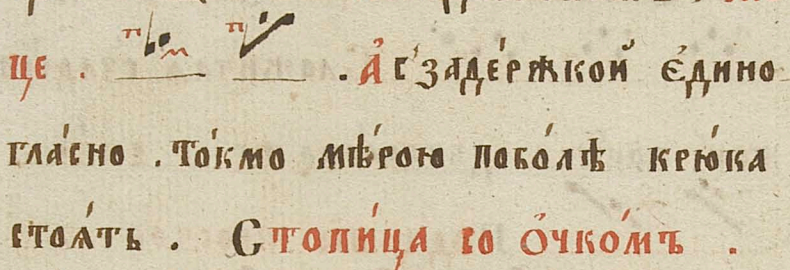 це . . А҆ с̾ задержкой є҆дино
гла́сно . То́кмо мѣ́рою побо́лѣ крю́ка
стоѧ́тъ . Стопи́ца со о҆чко́мъ .